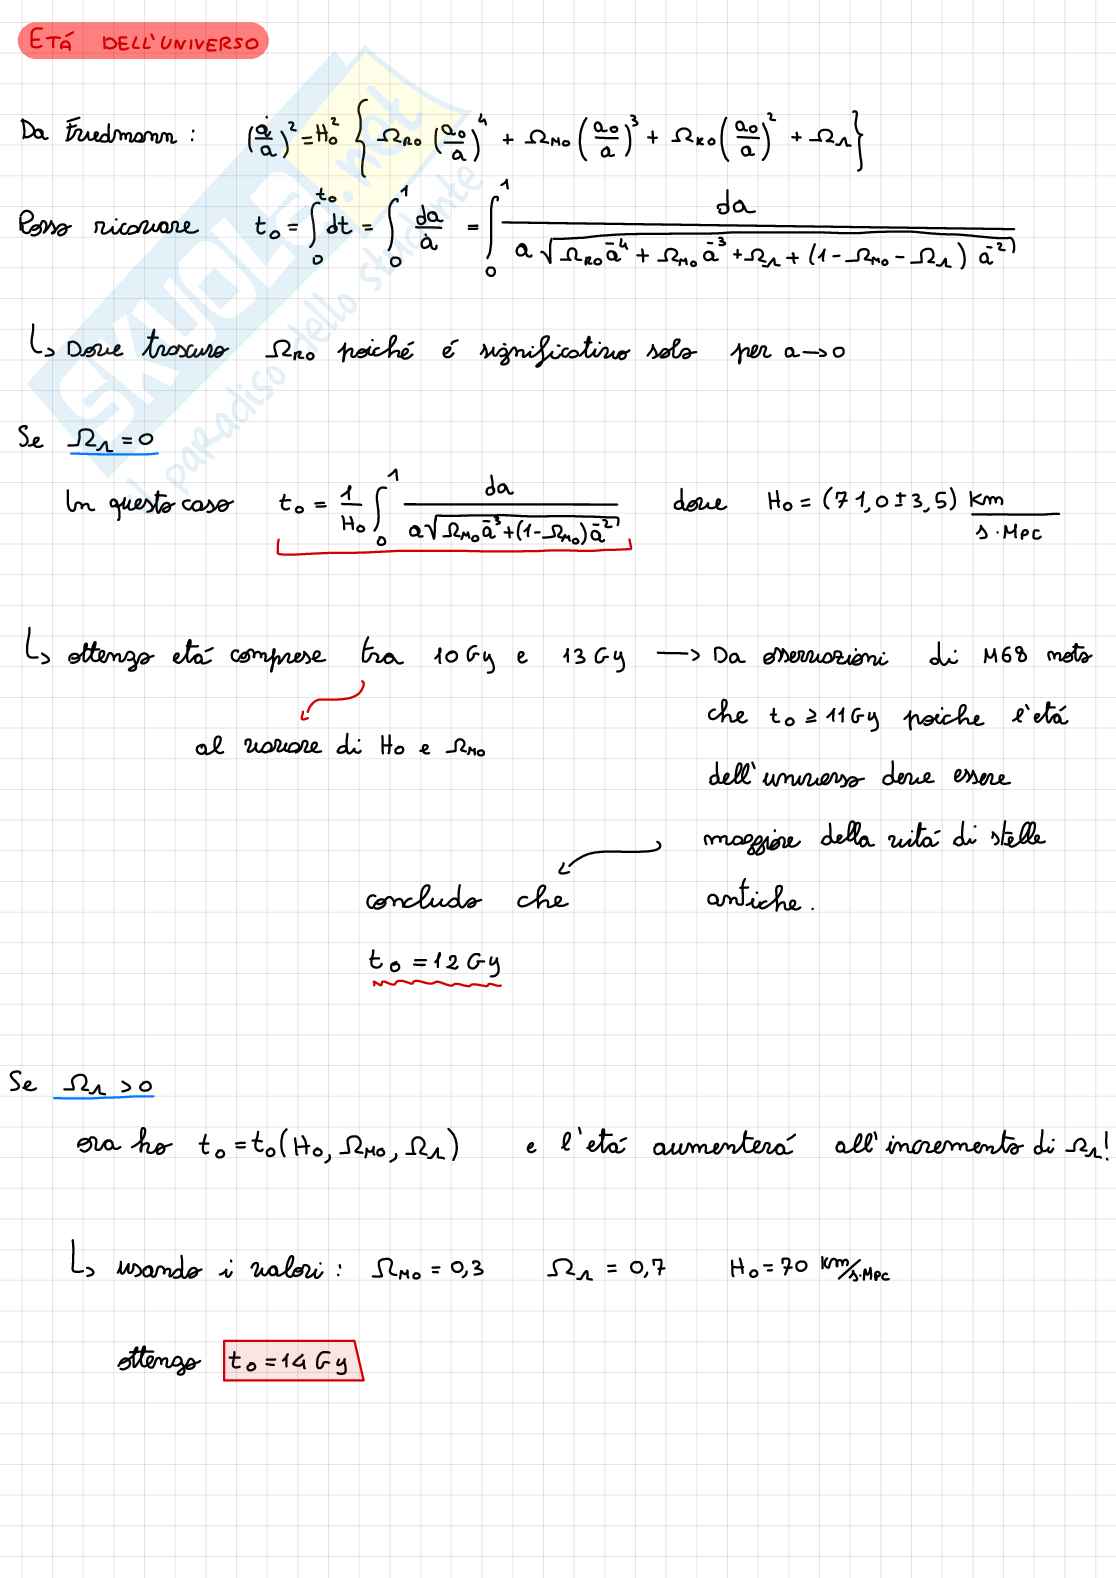 ETÁ DELL'UNIVERSO
Da Friedmann : (ȧ/a)² = H₀² { Ω_R0 (a₀/a)⁴ + Ω_M0 (a₀/a)³ + Ω_K0 (a₀/a)² + Ω_Λ }
Posso ricavare t₀ = ∫₀^t₀ dt = ∫₀¹ da/ȧ = ∫₀¹ da / (a √(Ω_R0 a⁻⁴ + Ω_M0 a⁻³ + Ω_Λ + (1 - Ω_M0 - Ω_Λ) a⁻²))
↳ Dove trascuro Ω_R0 poiché é significativo solo per a → 0
Se Ω_Λ = 0
In questo caso t₀ = 1/H₀ ∫₀¹ da / (a √(Ω_M0 a⁻³ + (1 - Ω_M0) a⁻²)) dove H₀ = (71,0 ± 3,5) Km / s · Mpc
↳ ottengo etá comprese tra 10 Gy e 13 Gy → Da osservazioni di M68 noto
che t₀ ≥ 11 Gy poiche l'etá
al variare di H₀ e Ω_M0
dell'universo deve essere
maggiore della vitá di stelle
antiche.
concludo che
t₀ = 12 Gy
Se Ω_Λ > 0
ora ho t₀ = t₀(H₀, Ω_M0, Ω_Λ) e l'etá aumenterá all'incremento di Ω_Λ!
↳ usando i valori : Ω_M0 = 0,3 Ω_Λ = 0,7 H₀ = 70 Km/s·Mpc
ottengo t₀ = 14 Gy
SKUOLA.net
il paradiso dello studente